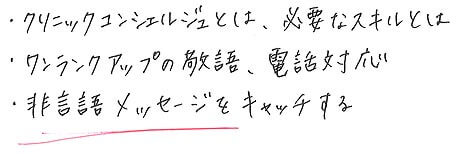 ・クリニックコンシェルジュとは、必要なスキルとは
・ワンランクアップの敬語、電話対応
・非言語メッセージをキャッチする